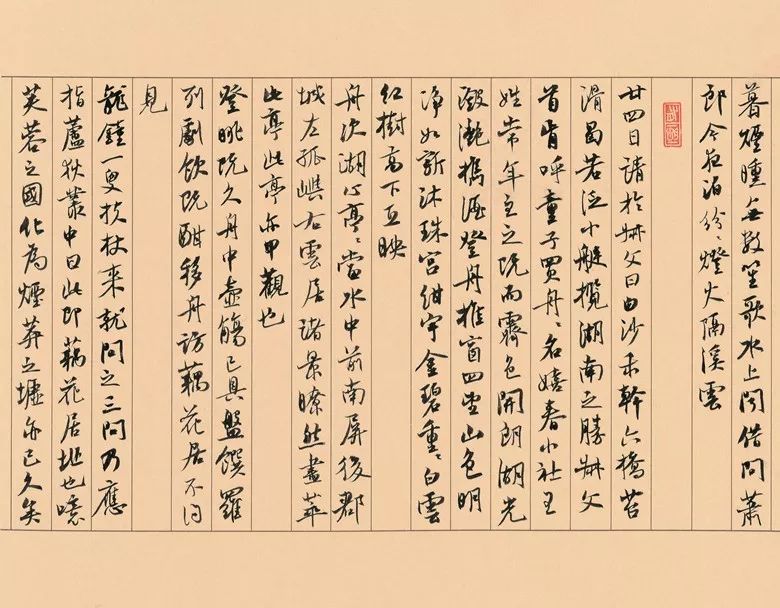 暮煙曛無數笙歌水上聞借問蕭
郎今夜泊紛々燈火隔溪雲
廿四日請於叔父曰白沙未幹六橋苔
滑曷若泛小艇攬湖南之勝叔父
首肯呼童子買舟々名嬉春小社王
姓常年主之既而霽色開朗湖光
瀲灩攜酒登舟推窗四望山色明
淨如新沐珠宮紺宇金碧重々白雲
紅樹高下互映
舟次湖心亭々當水中前南屏後郡
城左孤嶼右雲居諸景瞭然盡萃
此亭此亭亦甲觀也
登眺既久舟中壺觴已具盤饌羅
列劇飲既酣移舟訪藕花居不得
見
龍鍾一叟扶杖来就問之三問乃應
指蘆荻叢中曰此即藕花居址也噫
芙蓉之國化為煙莽之墟亦已久矣